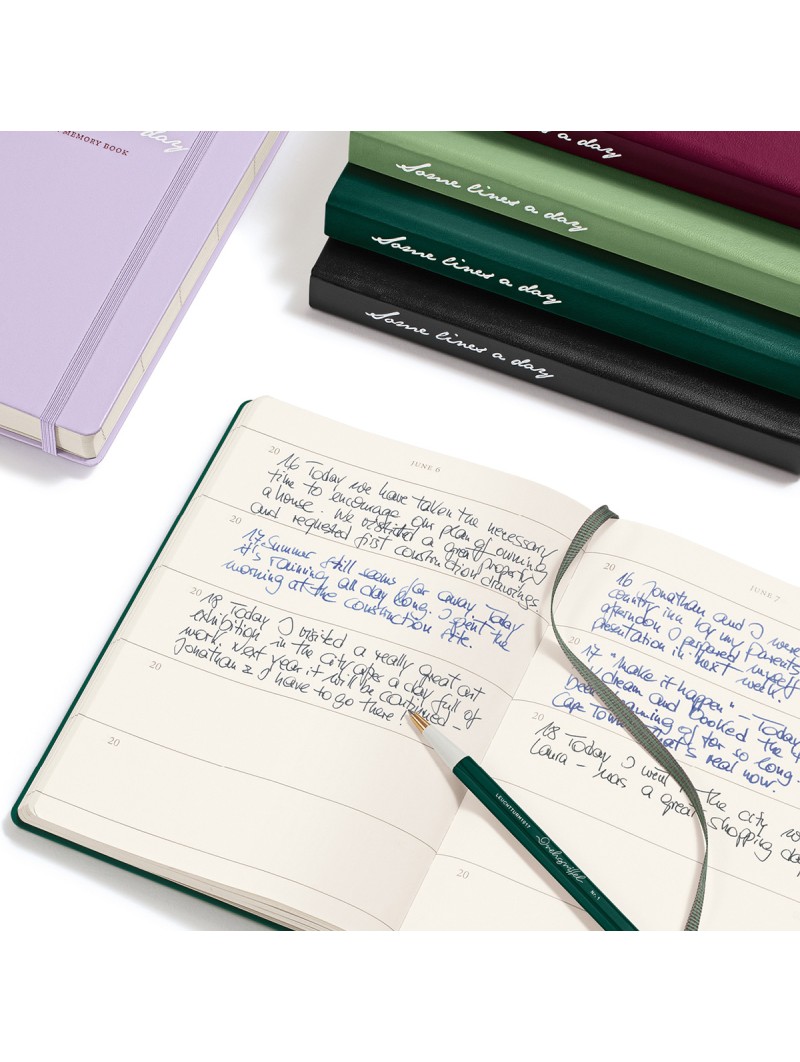 day
MEMORY BOOK
s a day
Some lines a day
Some lines a day
Some lines a day
JUNE 6
20 16 Today we have taken the necessary
time to encourage our plan of owning
a house. We visited a great property
and requested first construction drawings
20 17 Summer still seems far away. Today
it's raining all day long. I spent the
morning at the construction site.
20 18 Today I visited a really great art
exhibition in the city after a day full of
work. Next year it will be continued –
Jonathan & I have to go there!
20
20
JUNE 7
20 16 Jonathan and I were
country inn by my parents
afternoon I prepared myself
presentation in next week.
20 17 "make it happen" – Today
dream and booked the
Been dreaming of for so long.
Cape Town – that's real now.
20 18 Today I went the city
Laura – was a great shopping day
20
LEUCHTTURM1917
Drehgriffel
Nr. 1